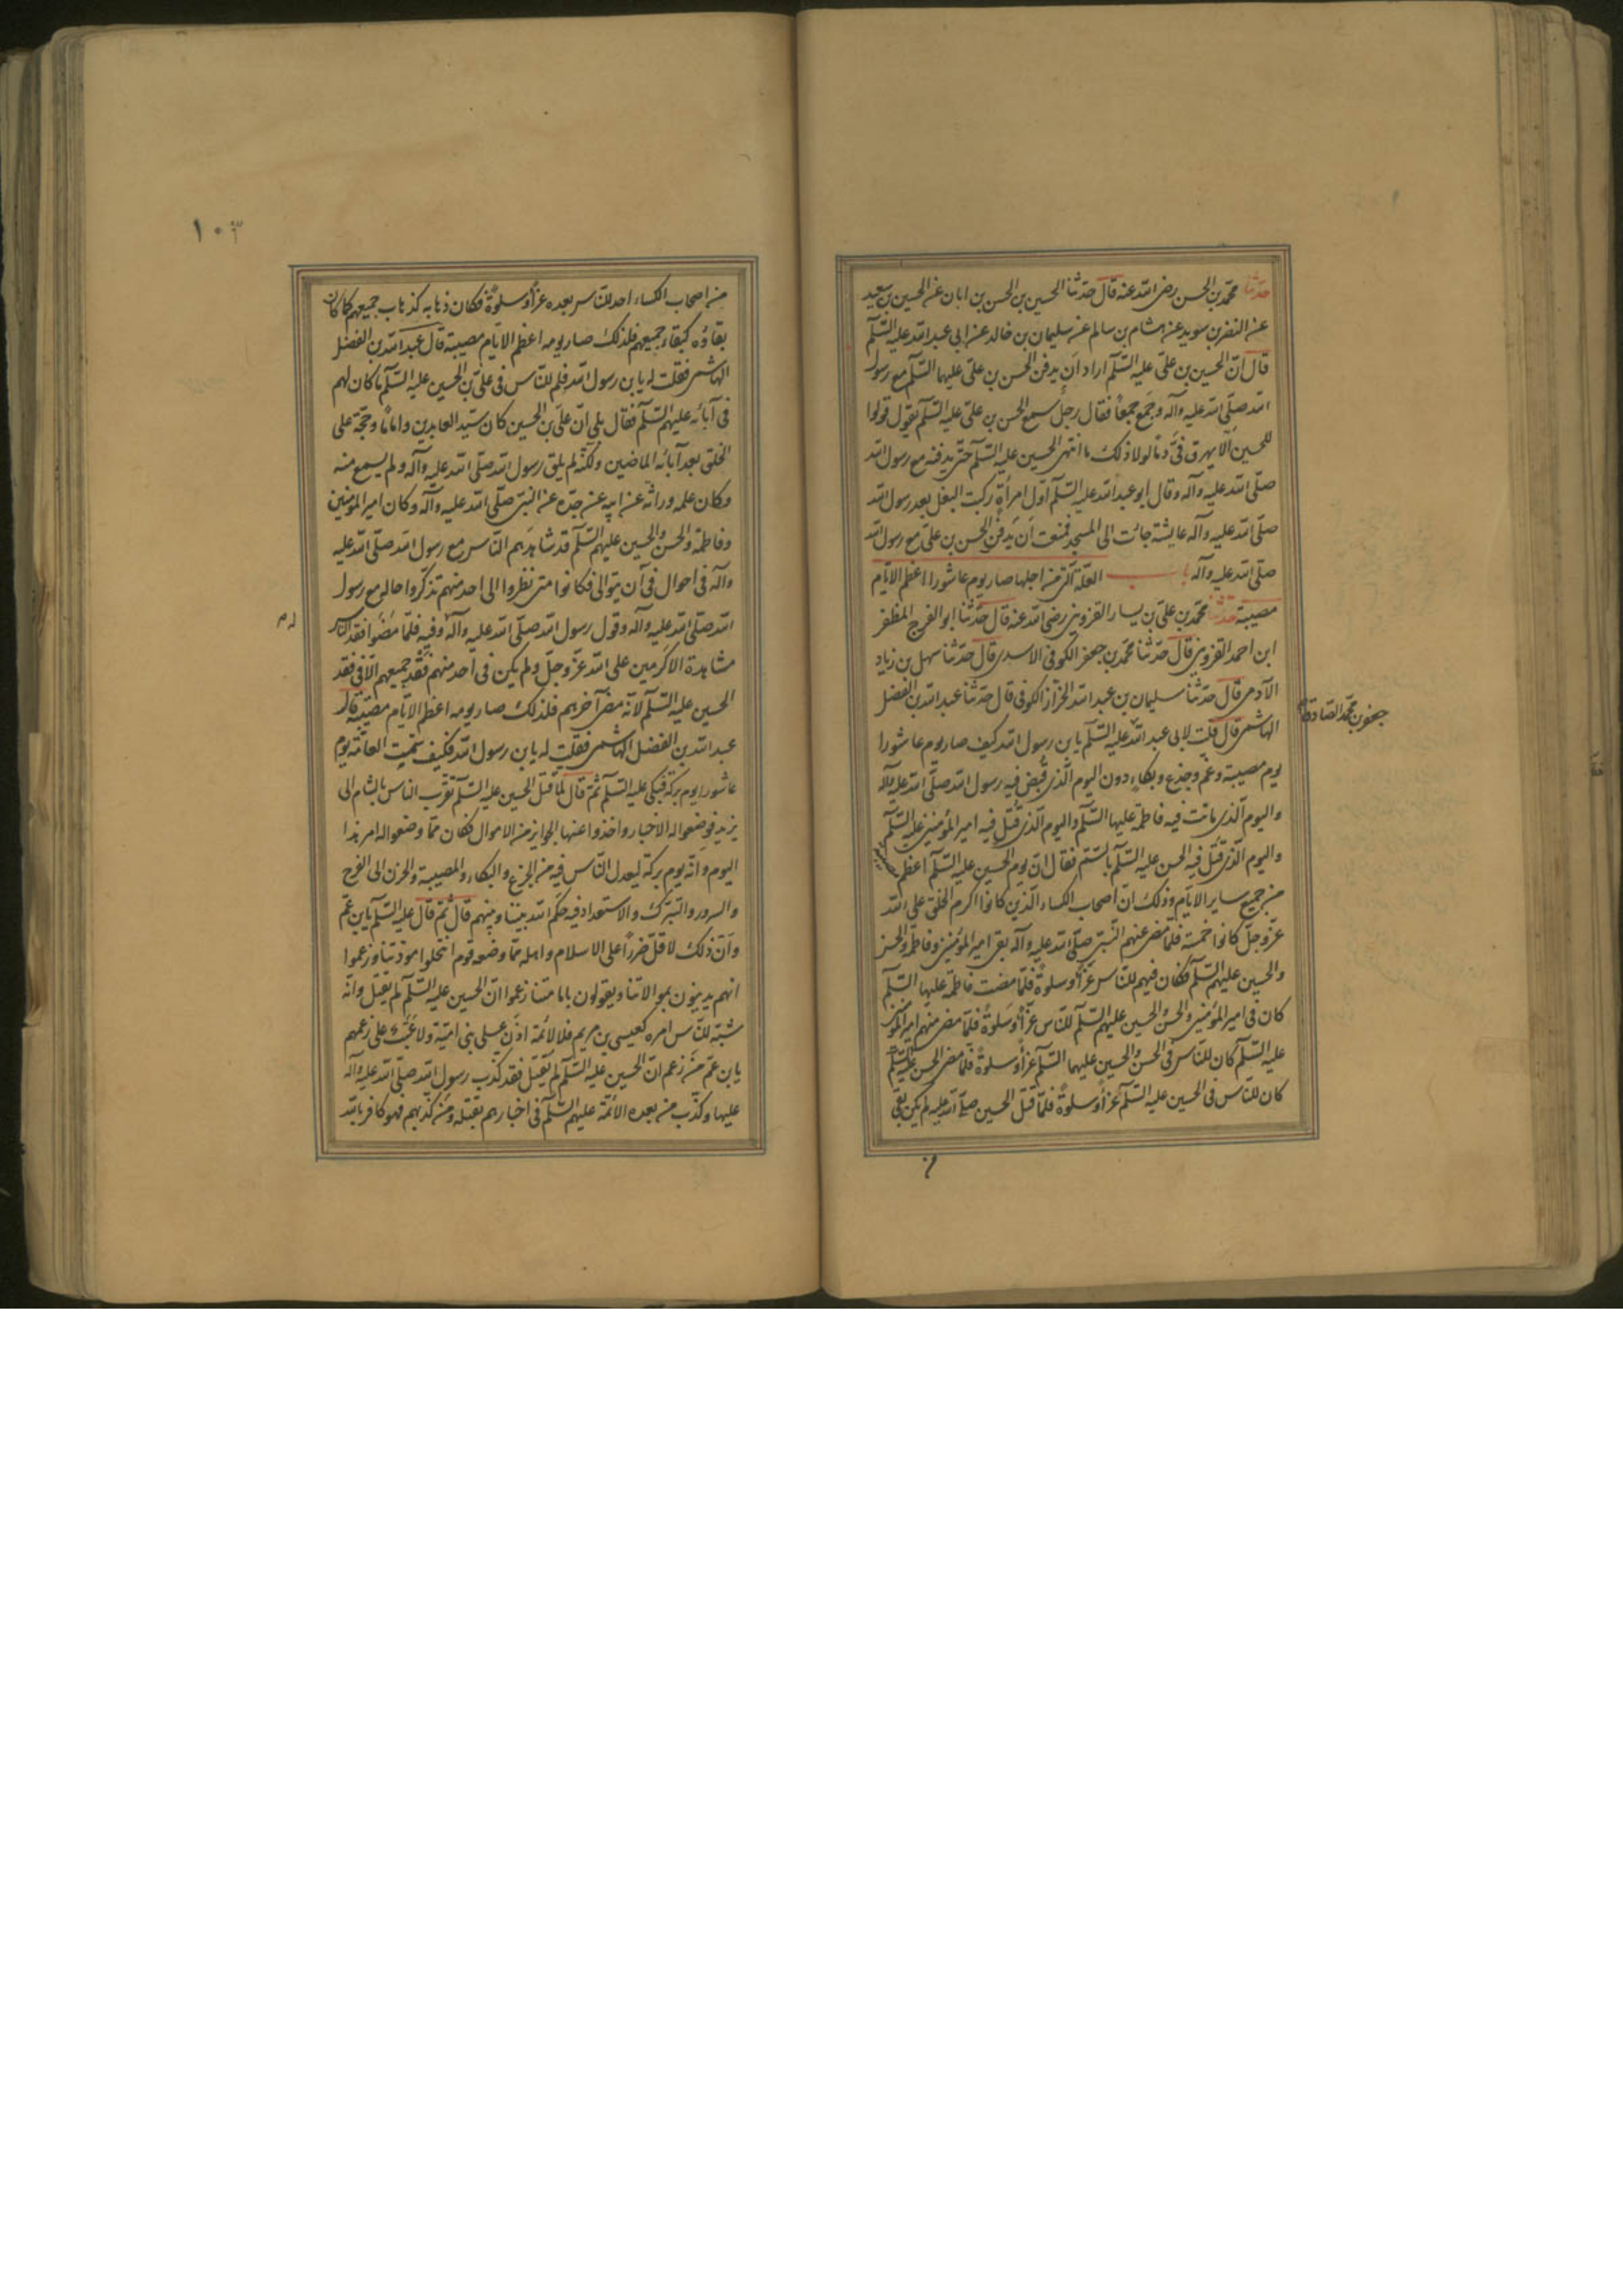 حدثنا محمد بن الحسن رضى الله عنه قال حدثنا الحسين بن الحسن بن ابان عن الحسين بن سعيد
عن النضر بن سويد عن هشام بن سالم عن سليمان بن خالد عن ابى عبد الله عليه السلم
قال ان الحسين بن على عليه السلم اراد ان يدفن الحسن بن على عليهما السلم مع رسول
الله صلى الله عليه وآله وجمع جمعا فقال رجل سمع الحسن بن على عليه السلم يقول قولوا
للحسين ألا يهرق فىّ دما لولا ذلك ما انتهى الحسين عليه السلم حتى يدفنه مع رسول الله
صلى الله عليه وآله وقال ابو عبد الله عليه السلم اول امرأة ركبت البغل بعد رسول الله
صلى الله عليه وآله عايشة جائت الى المسجد فمنعت ان يدفن الحسن بن على مع رسول الله
صلى الله عليه وآله باب العلة التى من اجلها صار يوم عاشورا اعظم الايام
مصيبة حدثنا محمد بن على بن بسار القزوينى رضى الله عنه قال حدثنا ابو الفرج المظفر
ابن احمد القزوينى قال حدثنا محمد بن جعفر الكوفى الاسدى قال حدثنا سهل بن زياد
الآدمى قال حدثنا سليمان بن عبد الله الخزاز الكوفى قال حدثنا عبد الله بن الفضل
جعفر بن محمد الصادق
الهاشمى قال قلت لابى عبد الله عليه السلم يا بن رسول الله كيف صار يوم عاشورا
يوم مصيبة وغم وجزع وبكاء دون اليوم الذى قبض فيه رسول الله صلى الله عليه وآله
واليوم الذى ماتت فيه فاطمة عليها السلم واليوم الذى قتل فيه امير المؤمنين عليه السلم
واليوم الذى قتل فيه الحسن عليه السلم بالسم فقال ان يوم الحسين عليه السلم اعظم مصيبة
من جميع ساير الايام وذلك ان اصحاب الكساء الذين كانوا اكرم الخلق على الله
عز وجل كانوا خمسة فلما مضى عنهم النبى صلى الله عليه وآله بقى امير المؤمنين وفاطمة والحسن
والحسين عليهم السلم فكان فيهم للناس عزاء وسلوة فلما مضت فاطمة عليها السلم
كان فى امير المؤمنين والحسن والحسين عليهم السلم للناس عزاء وسلوة فلما مضى منهم امير المؤمنين
عليه السلم كان للناس فى الحسن والحسين عليهما السلم عزاء وسلوة فلما مضى الحسن عليه السلم
كان للناس فى الحسين عليه السلم عزاء وسلوة فلما قتل الحسين صلى الله عليه لم يكن بقى
من
١٠٣
من اصحاب الكساء احد للناس بعده عزاء وسلوة فكان ذهابه كذهاب جميعهم كما كان
بقاؤه كبقاء جميعهم فلذلك صار يومه اعظم الايام مصيبة قال عبد الله بن الفضل
الهاشمى فقلت له يا بن رسول الله فلم للناس فى على بن الحسين عليه السلم ما كان لهم
فى آبائه عليهم السلم فقال بلى ان على بن الحسين كان سيد العابدين واماما وحجة على
الخلق بعد آبائه الماضين ولكنه لم يلق رسول الله صلى الله عليه وآله ولم يسمع منه
وكان علمه وراثة عن ابيه عن جده عن النبى صلى الله عليه وآله وكان امير المؤمنين
وفاطمة والحسن والحسين عليهم السلم قد شاهدهم الناس مع رسول الله صلى الله عليه
وآله فى احوال فى آن يتوالى فكانوا متى نظروا الى احد منهم تذكروا حاله مع رسول
الله صلى الله عليه وآله وقول رسول الله صلى الله عليه وآله وفيه فلما مضوا فقد الناس
له م
مشاهدة الاكرمين على الله عز وجل ولم يكن فى احد منهم فقد جميعهم الا فى فقد
الحسين عليه السلم لانه مضى آخرهم فلذلك صار يومه اعظم الايام مصيبة قال
عبد الله بن الفضل الهاشمى فقلت له يا بن رسول الله فكيف سمّيت العامة يوم
عاشورا يوم بركة فبكى عليه السلم ثم قال لما قتل الحسين عليه السلم تقرب الناس بالشام الى
يزيد فوضعوا له الاخبار واخذوا عنها الجوايز من الاموال فكان مما وضعوا له امر هذا
اليوم وانه يوم بركة ليعدل الناس فيه من الجزع والبكاء والمصيبة والحزن الى الفرح
والسرور والتبرك والاستعداد فيه حكم الله بيننا وبينهم قال ثم قال عليه السلم يا بن عم
وان ذلك لاقل ضررا على الاسلام واهله مما وضعه قوم انتحلوا مودتنا وزعموا
انهم يدينون بموالاتنا ويقولون بامامتنا زعموا ان الحسين عليه السلم لم يقتل وانه
شبه للناس امره كعيسى بن مريم فلا لائمة اذن على بنى امية ولا عتب على زعمهم
يا بن عم من زعم ان الحسين عليه السلم لم يقتل فقد كذب رسول الله صلى الله عليه وآله
عليها وكذب من بعده الائمة عليهم السلم فى اخبارهم بقتله ومن كذبهم فهو كافر بالله